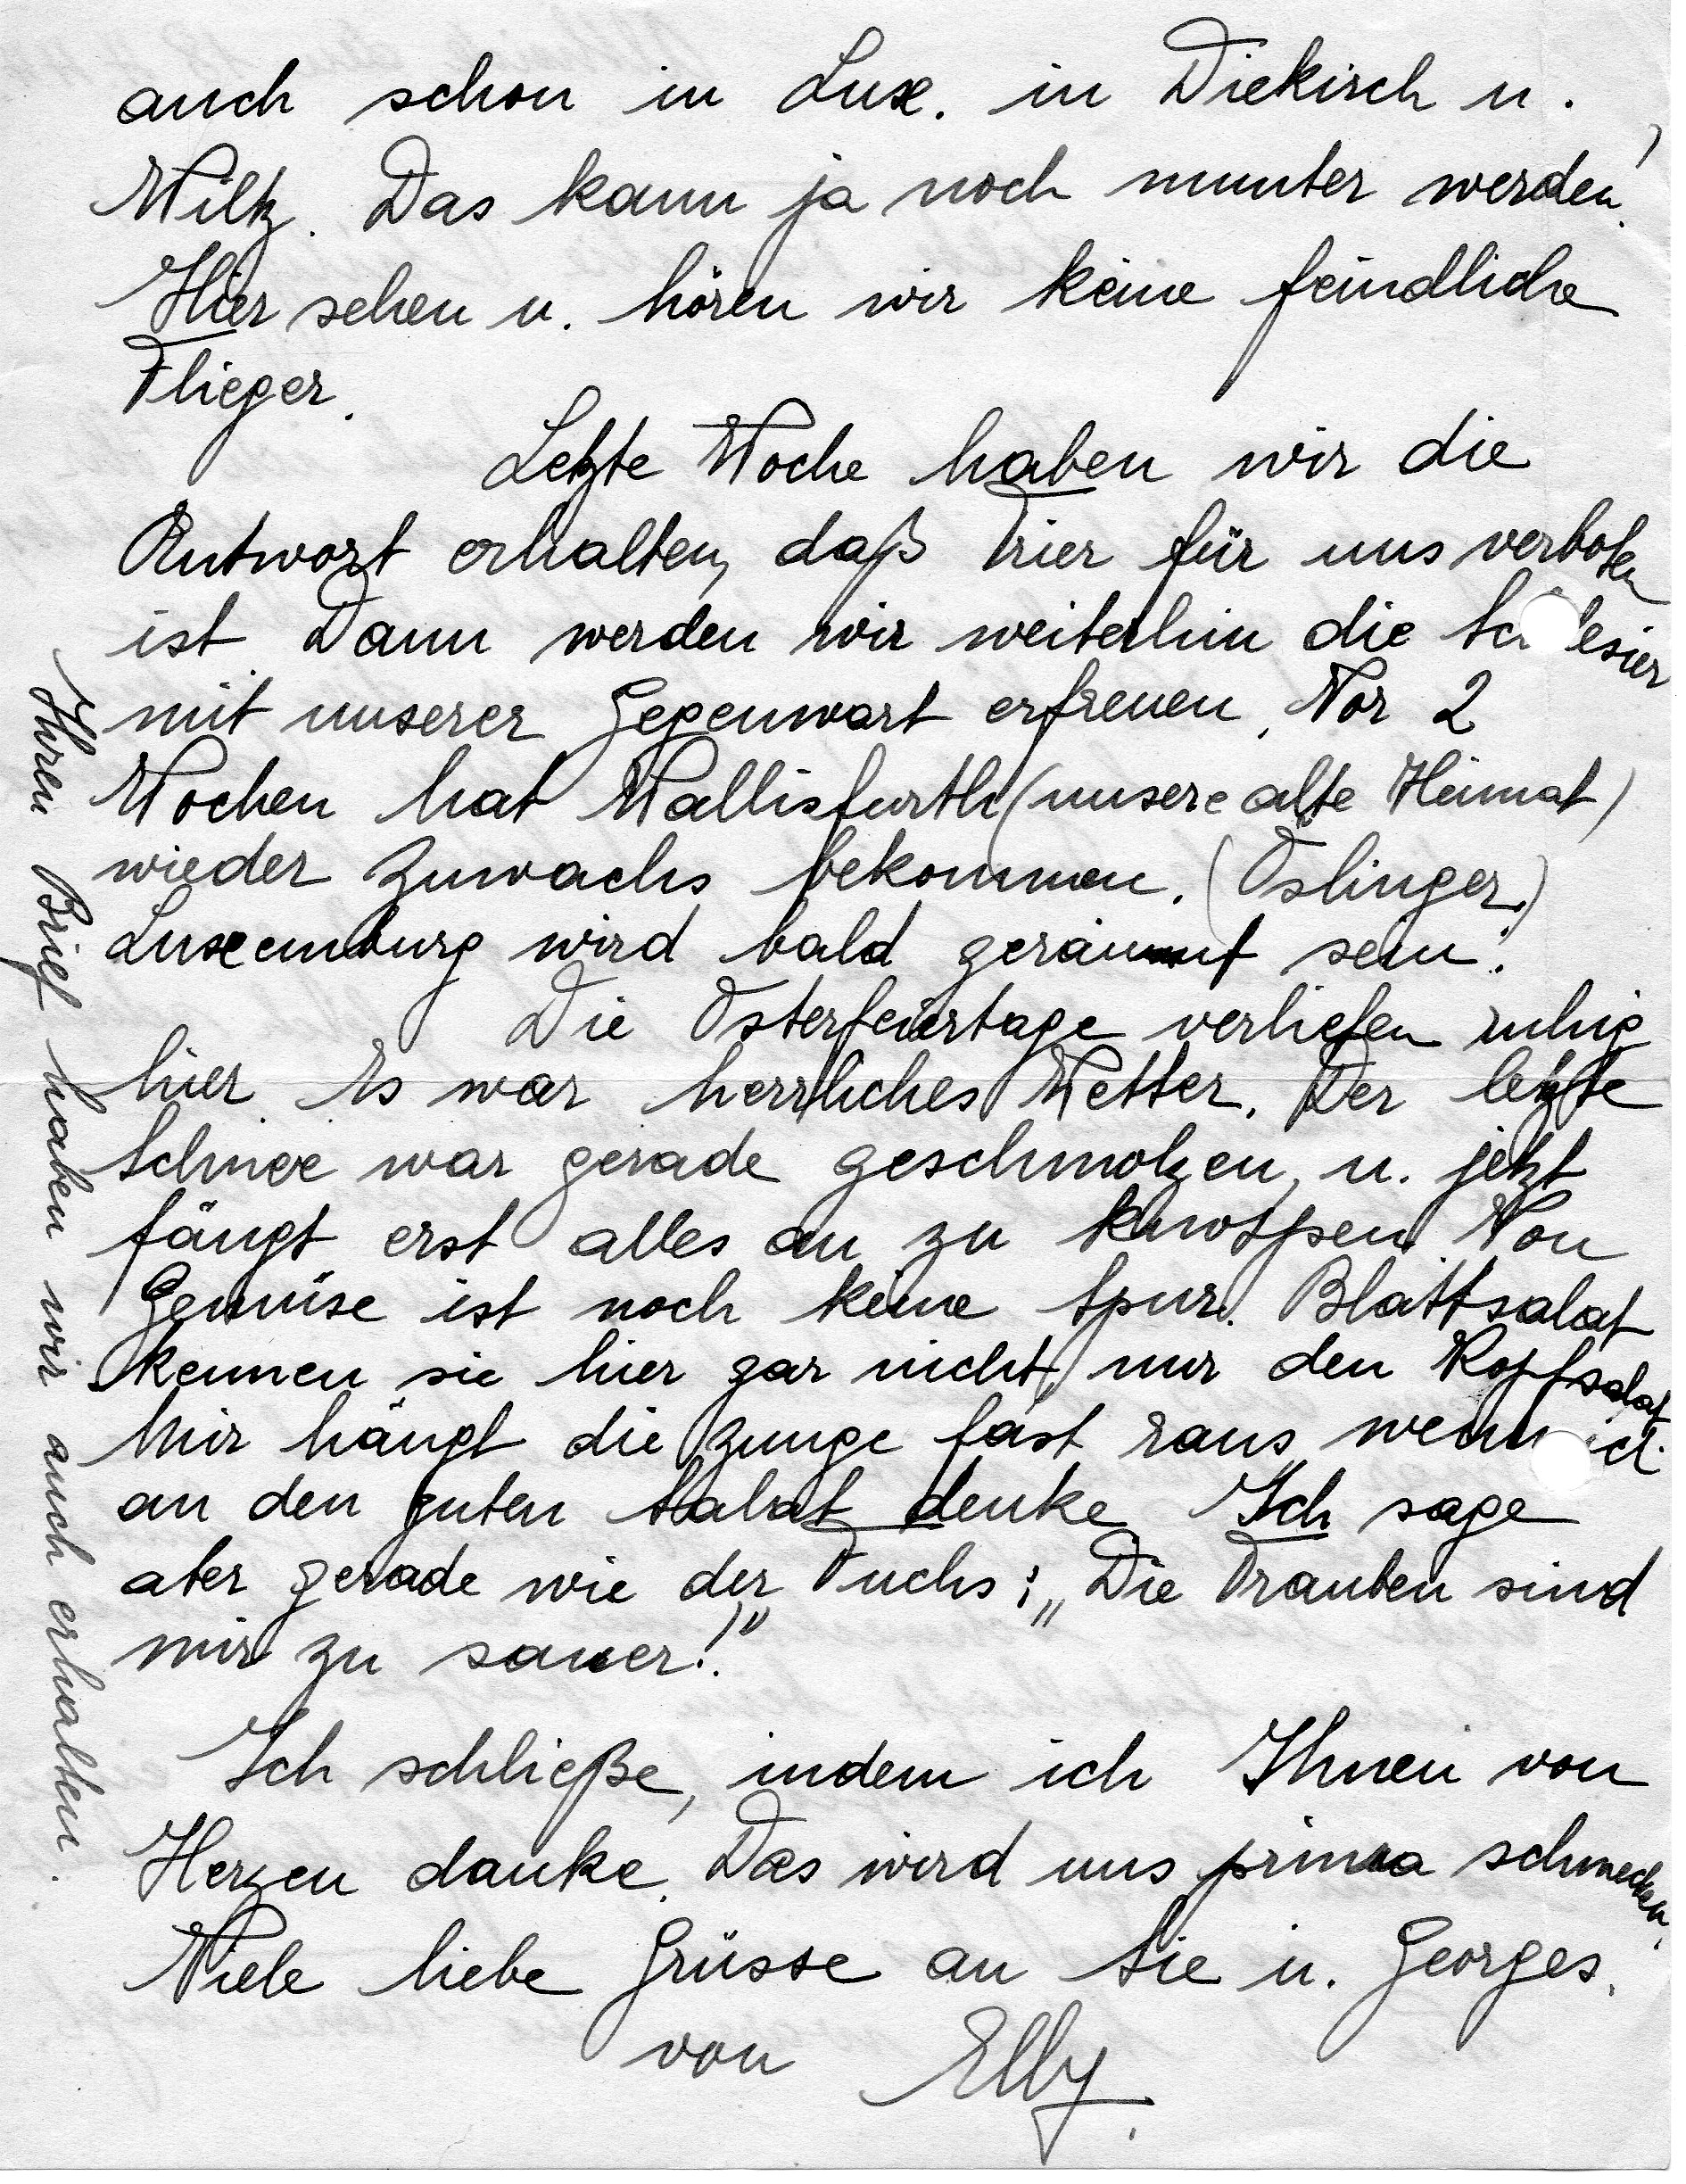 auch schon in Lux. in Diekirch u.
Wiltz. Das kann ja noch munter werden!
Hier sehen u. hören wir keine feindliche
Flieger.
Letzte Woche haben wir die
Antwort erhalten, daß Trier für uns verboten
ist. Dann werden wir weiterhin die Schlesier
mit unserer Gegenwart erfreuen. Vor 2
Wochen hat Wallisfurth (unsere alte Heimat)
wieder Zuwachs bekommen. (Öslinger.)
Luxemburg wird bald geräumt sein!
Die Osterfeiertage verliefen ruhig
hier. Es war herrliches Wetter. Der letzte
Schnee war gerade geschmolzen, u. jetzt
fängt erst alles an zu knospen. Von
Gemüse ist noch keine Spur. Blattsalat
kennen sie hier gar nicht, nur den Kopfsalat.
Mir hängt die Zunge fast raus, wenn ich
an den guten Salat denke. Ich sage
aber gerade wie der Fuchs: „Die Trauben sind
mir zu sauer!"
Ich schließe, indem ich Ihnen von
Herzen danke. Das wird uns prima schmecken.
Viele liebe Grüsse an Sie u. Georges.
von Elly.
Ihren Brief haben wir auch erhalten.